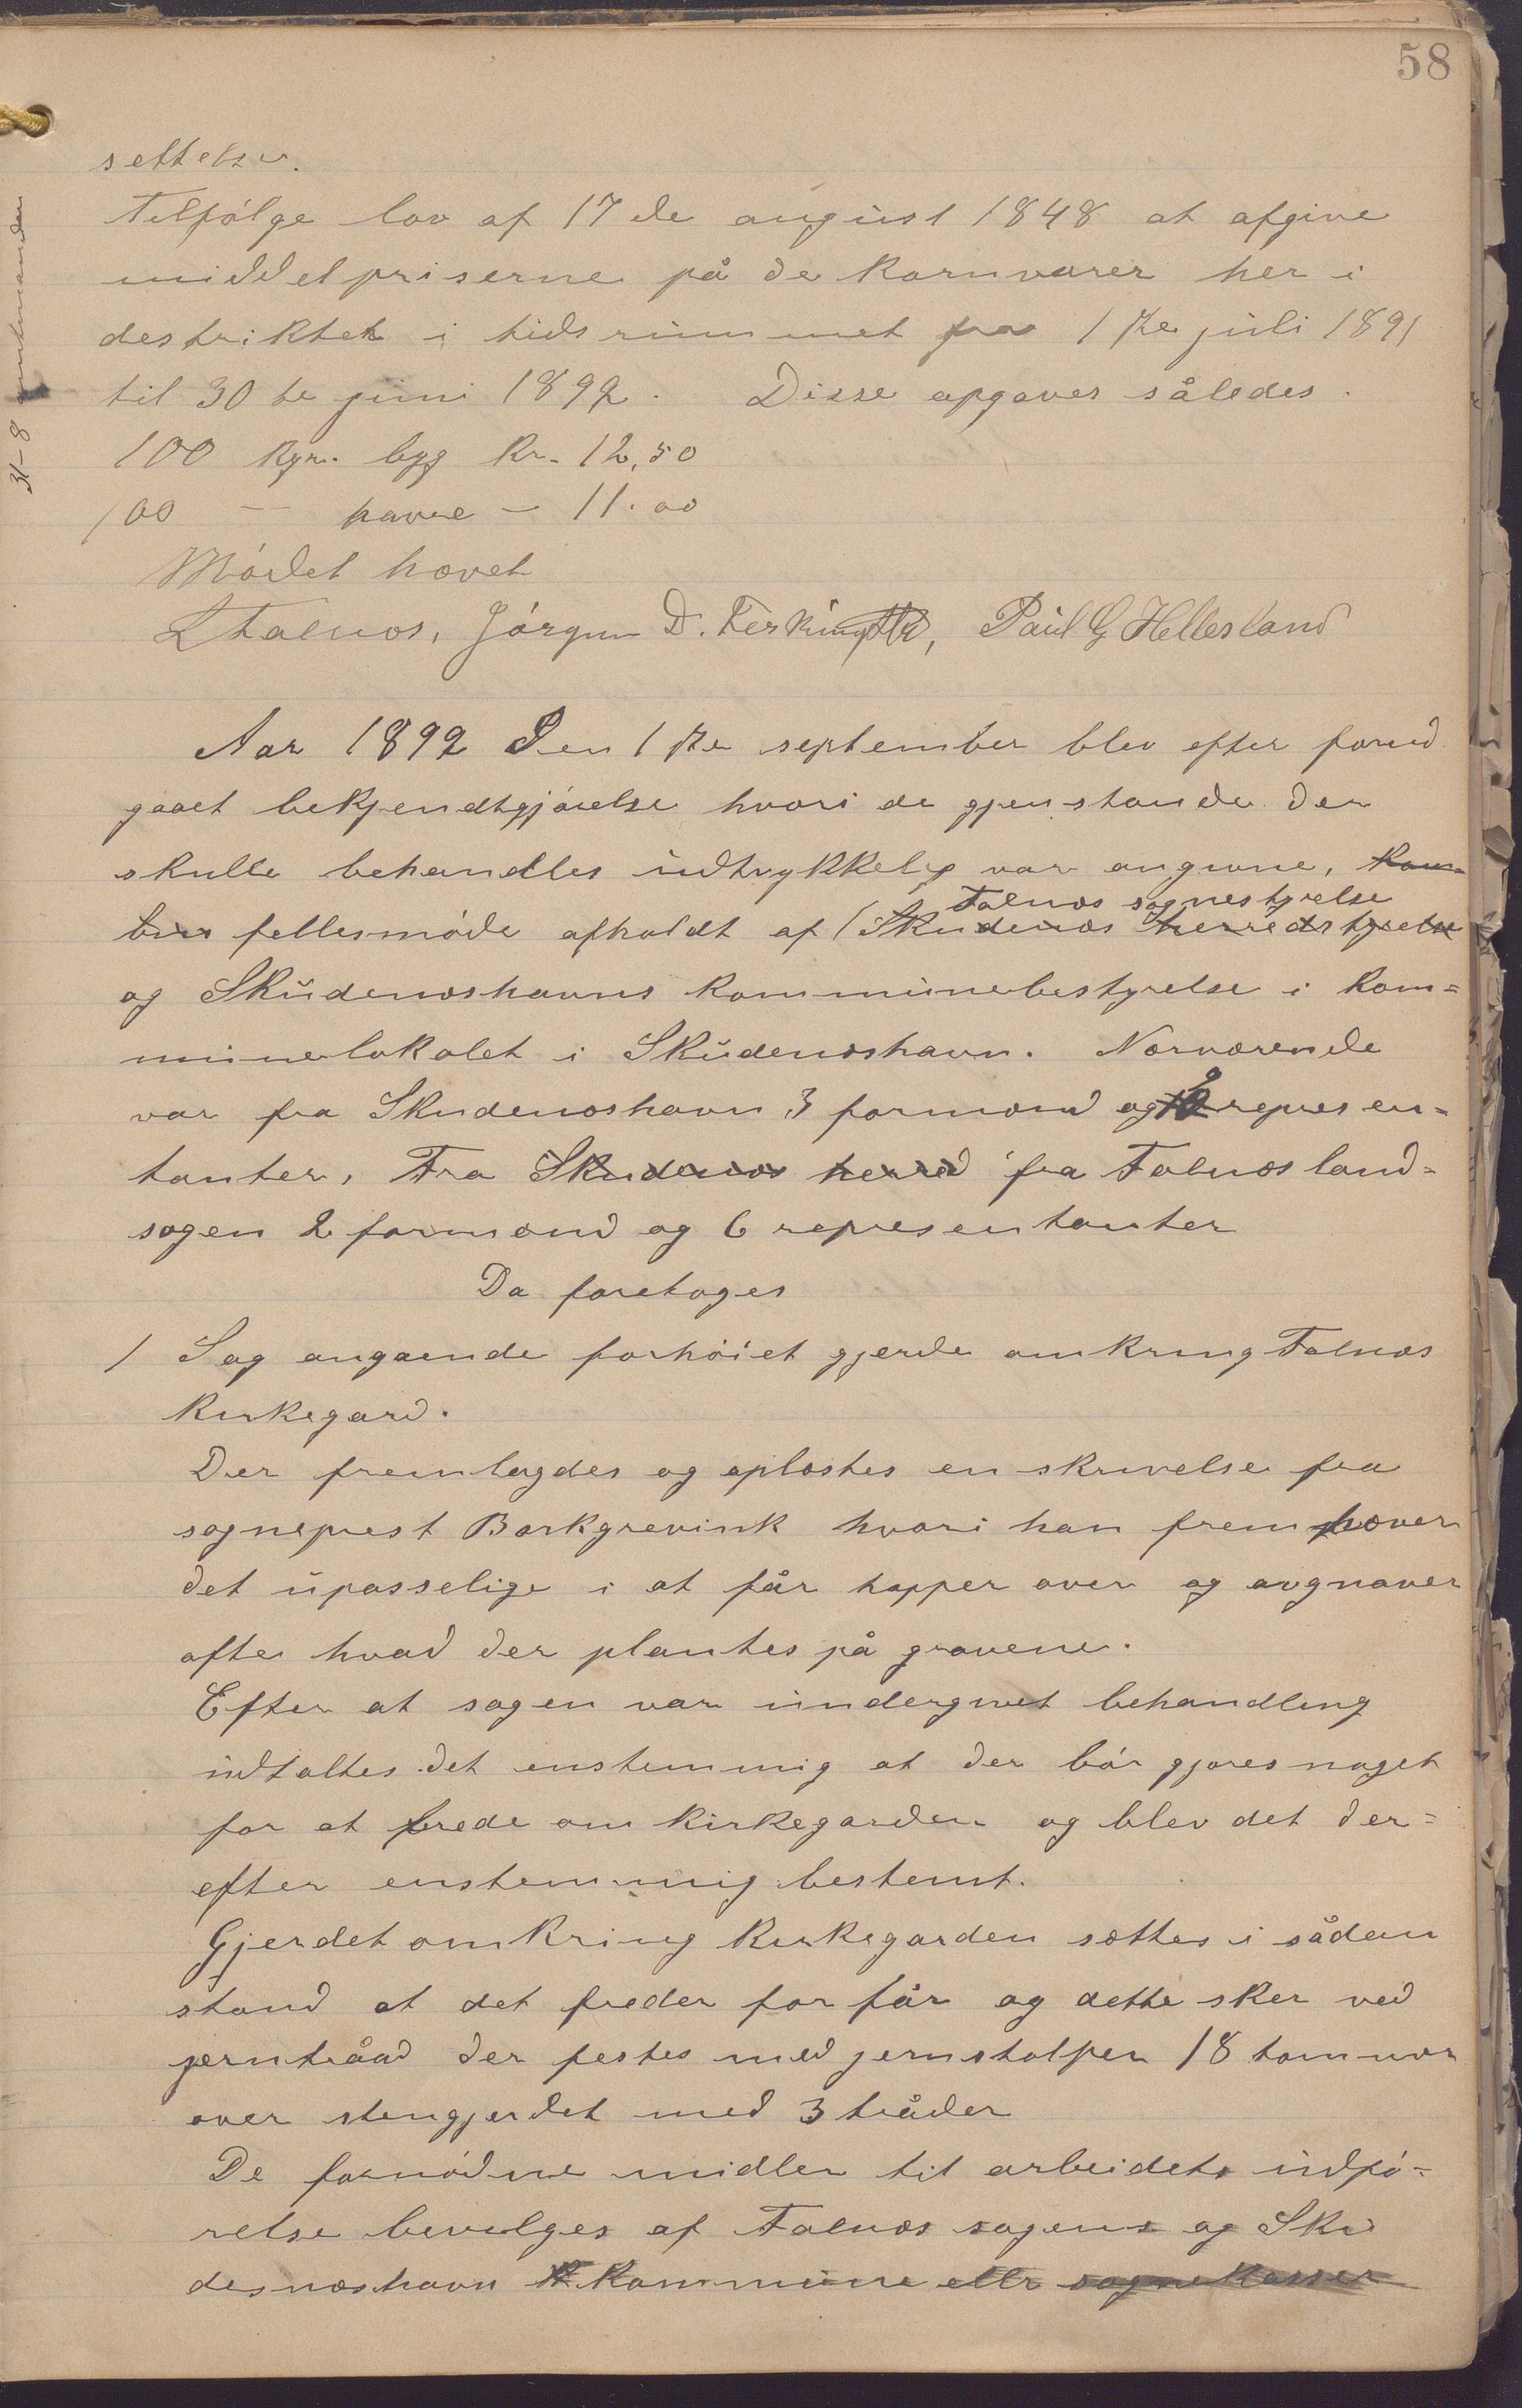 58
settelser.
Tilfølge lov af 17de august 1848 at afgive
middelpriserne på de kornvarer her i
destriktet i tidsrummet fra 1ste juli 1891
til 30te juni 1892. Disse opgaves således.
100 kgr. byg kr. 12,50
100 — havre — 11.00
Mødet hævet
L Falnæs, Jørgen D. Ferkingstad, Paul G Hellesland
31-8 amtmanden
Aar 1892 Den 1ste september blev efter forud
gaaet bekjendtgjørelse hvori de gjenstande der
skulle behandles udtrykkelig var angivne, kom-
bin fellesmøde afholdt af Skudenæs herredstyrelse
Falnæs sognestyrelse
og Skudenæshavns kommunebestyrelse i kom=
munelokalet i Skudenæshavn. Nærværende
var fra Skudenæshavn 3 formænd og 9 represen=
tanter, Fra Skudenæs herred fra Falnæs land=
sogen 2 formænd og 6 representanter
Da foretoges
1 Sag angaende forhøiet gjerde omkring Falnæs
kirkegard.
Der fremlagdes og oplæstes en skrivelse fra
sogneprest Borkgrevink hvori han fremhæver
det upasselige i at får hopper over og avgnaver
ofte hvad der plantes på gravene.
Efter at sagen var undergivet behandling
udtaltes det enstemmig at der bør gjøres noget
for at frede om kirkegarden og blev det der=
efter enstemmig bestemt.
Gjerdet omkring kirkegarden sættes i sådan
stand at det freder for får og dette sker ved
jerntråad der festes med jernstolper 18 tommer
over stengjerdet med 3 tråder
De fornødne midler til arbeidets udfø=
relse bevilges af Falnæs sogens og Sku
desnæshavn kommune ellr sognekasser